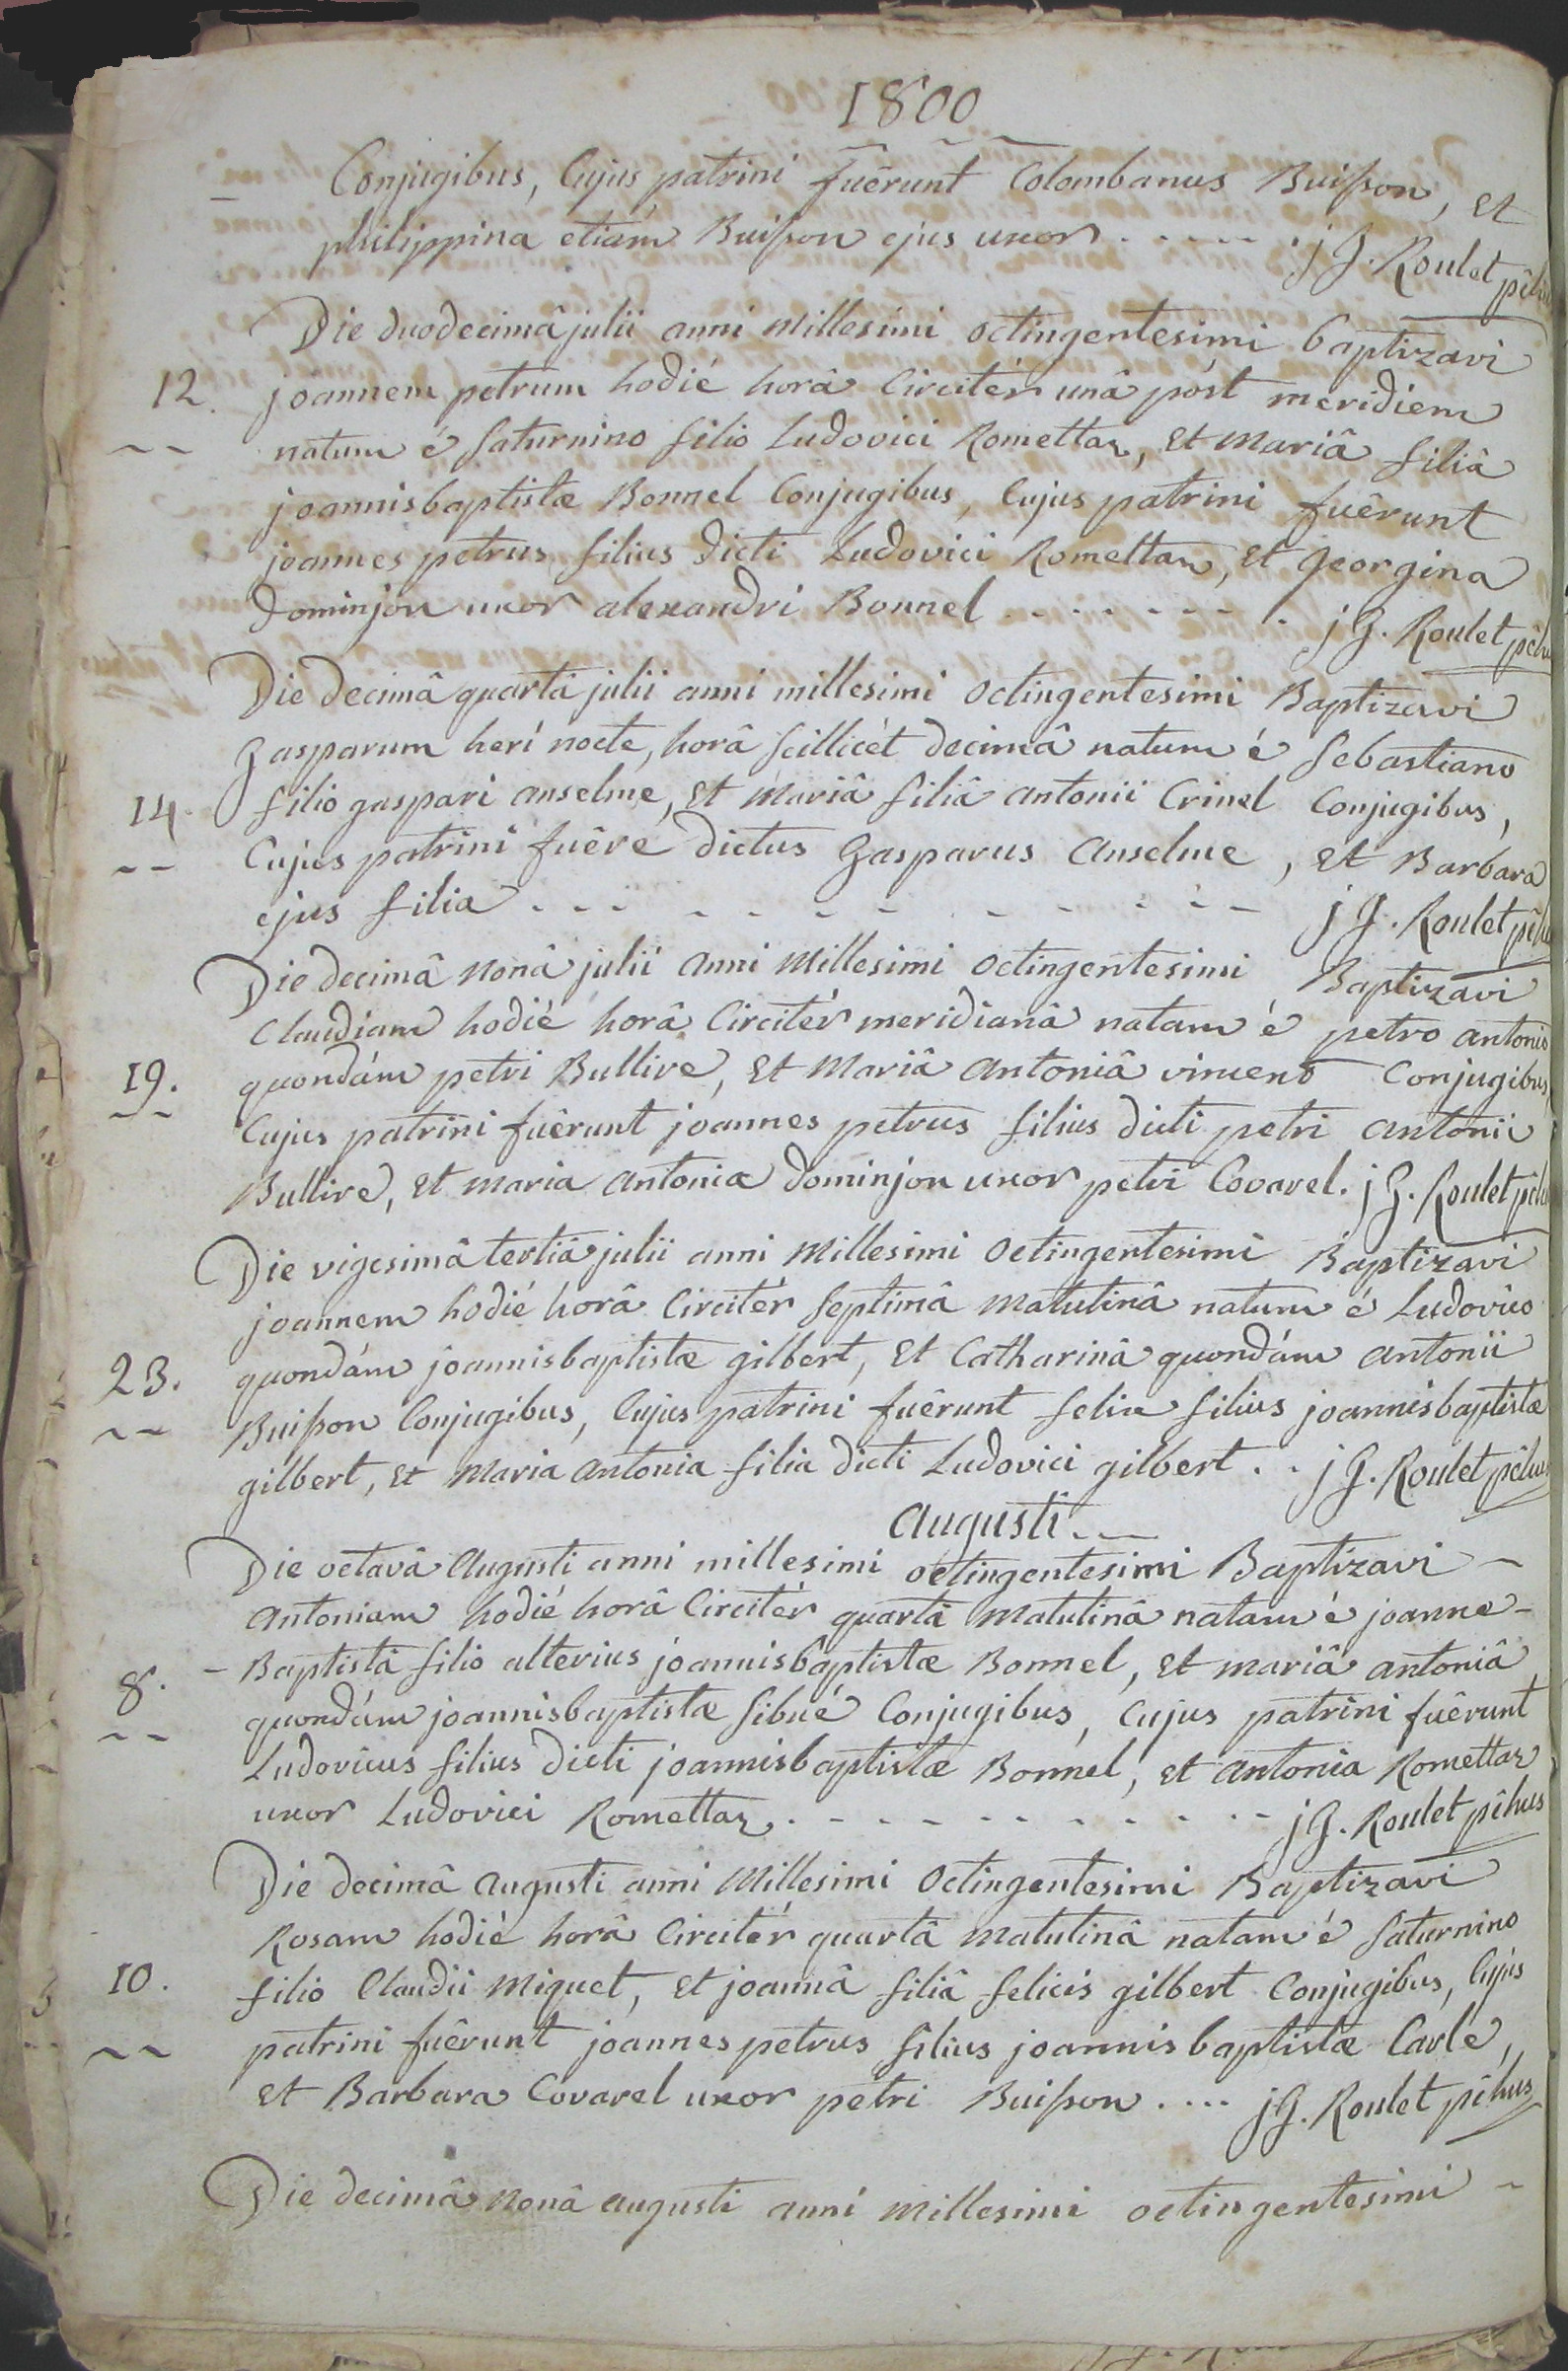 1800
Conjugibus, Cujus patrini fuêrunt Colombanus Buisson, et
philippina etiám Buisson ejus uxor . . . . . . j G. Roulet pchus
Die duodecimâ julii anni Millesimi octingentesimi baptizavi
12. joannem petrum hodié horâ Circitér unâ póst meridiem
natum é Saturnino filio Ludovici Romettaz, et Mariâ filiâ
joannisbaptistæ Bonnel Conjugibus, Cujus patrini fuêrunt
joannes petrus filius dicti Ludovici Romettaz, et georgina
dominjon uxor alexandri Bonnel . . . . . . . j G. Roulet pchus
Die decimâ quartâ julii anni millesimi octingentesimi Baptizavi
Gasparum heri nocte, horâ Scillicét decimâ natum é Sebastiano
14. filio gaspari anselme, et Mariâ filiâ antonii Crinel Conjugibus,
Cujus patrini fuêre dictus Gasparus Anselme, et Barbara
ejus filia . . . . . . . . . . . j G. Roulet pchus
Die decimâ nonâ julii anni Millesimi octingentesimi Baptizavi
Claudiam hodié horâ Circitér meridianâ natam é petro antonio
19. quondám petri Bullire, et Mariâ Antoniâ vincend Conjugibus,
Cujus patrini fuêrunt joannes petrus filius dicti petri antonii
Bullire, et maria Antonia dominjon uxor petri Covarel. j G. Roulet pchus
Die vigesimâ tertiâ julii anni Millesimi octingentesimi Baptizavi
joannem hodié horâ Circitér Septimâ Matutinâ natum é Ludovico
23. quondám joannisbaptistæ gilbert, et Catharinâ quondám antonii
Buisson Conjugibus, Cujus patrini fuêrunt felix filius joannisbaptistæ
gilbert, et Maria Antonia filia dicti Ludovici gilbert . . j G. Roulet pchus
Augusti
Die octavâ Augusti anni millesimi octingentesimi Baptizavi -
Antoniam hodié horâ Circitér quartâ Matutinâ natam é joanne-
8. - Baptistâ filio alterius joannisbaptistæ Bonnel, et mariâ antoniâ
quondám joannisbaptistæ Sibué Conjugibus, Cujus patrini fuêrunt
Ludovicus filius dicti joannisbaptistæ Bonnel, et Antonia Romettaz
uxor Ludovici Romettaz . . . . . . . . . . j G. Roulet pchus
Die decimâ Augusti anni Millesimi octingentesimi Baptizavi
Rosam hodié horâ Circitér quartâ Matutinâ natam é Saturnino
10. filio Claudii Miquet, et joannâ filiâ felicis gilbert Conjugibus, Cujus
patrini fuêrunt joannes petrus filius joannis baptistæ Carle,
et Barbara Covarel uxor petri Buisson . . . . j G. Roulet pchus
Die decimâ nonâ augusti anni Millesimi octingentesimi -